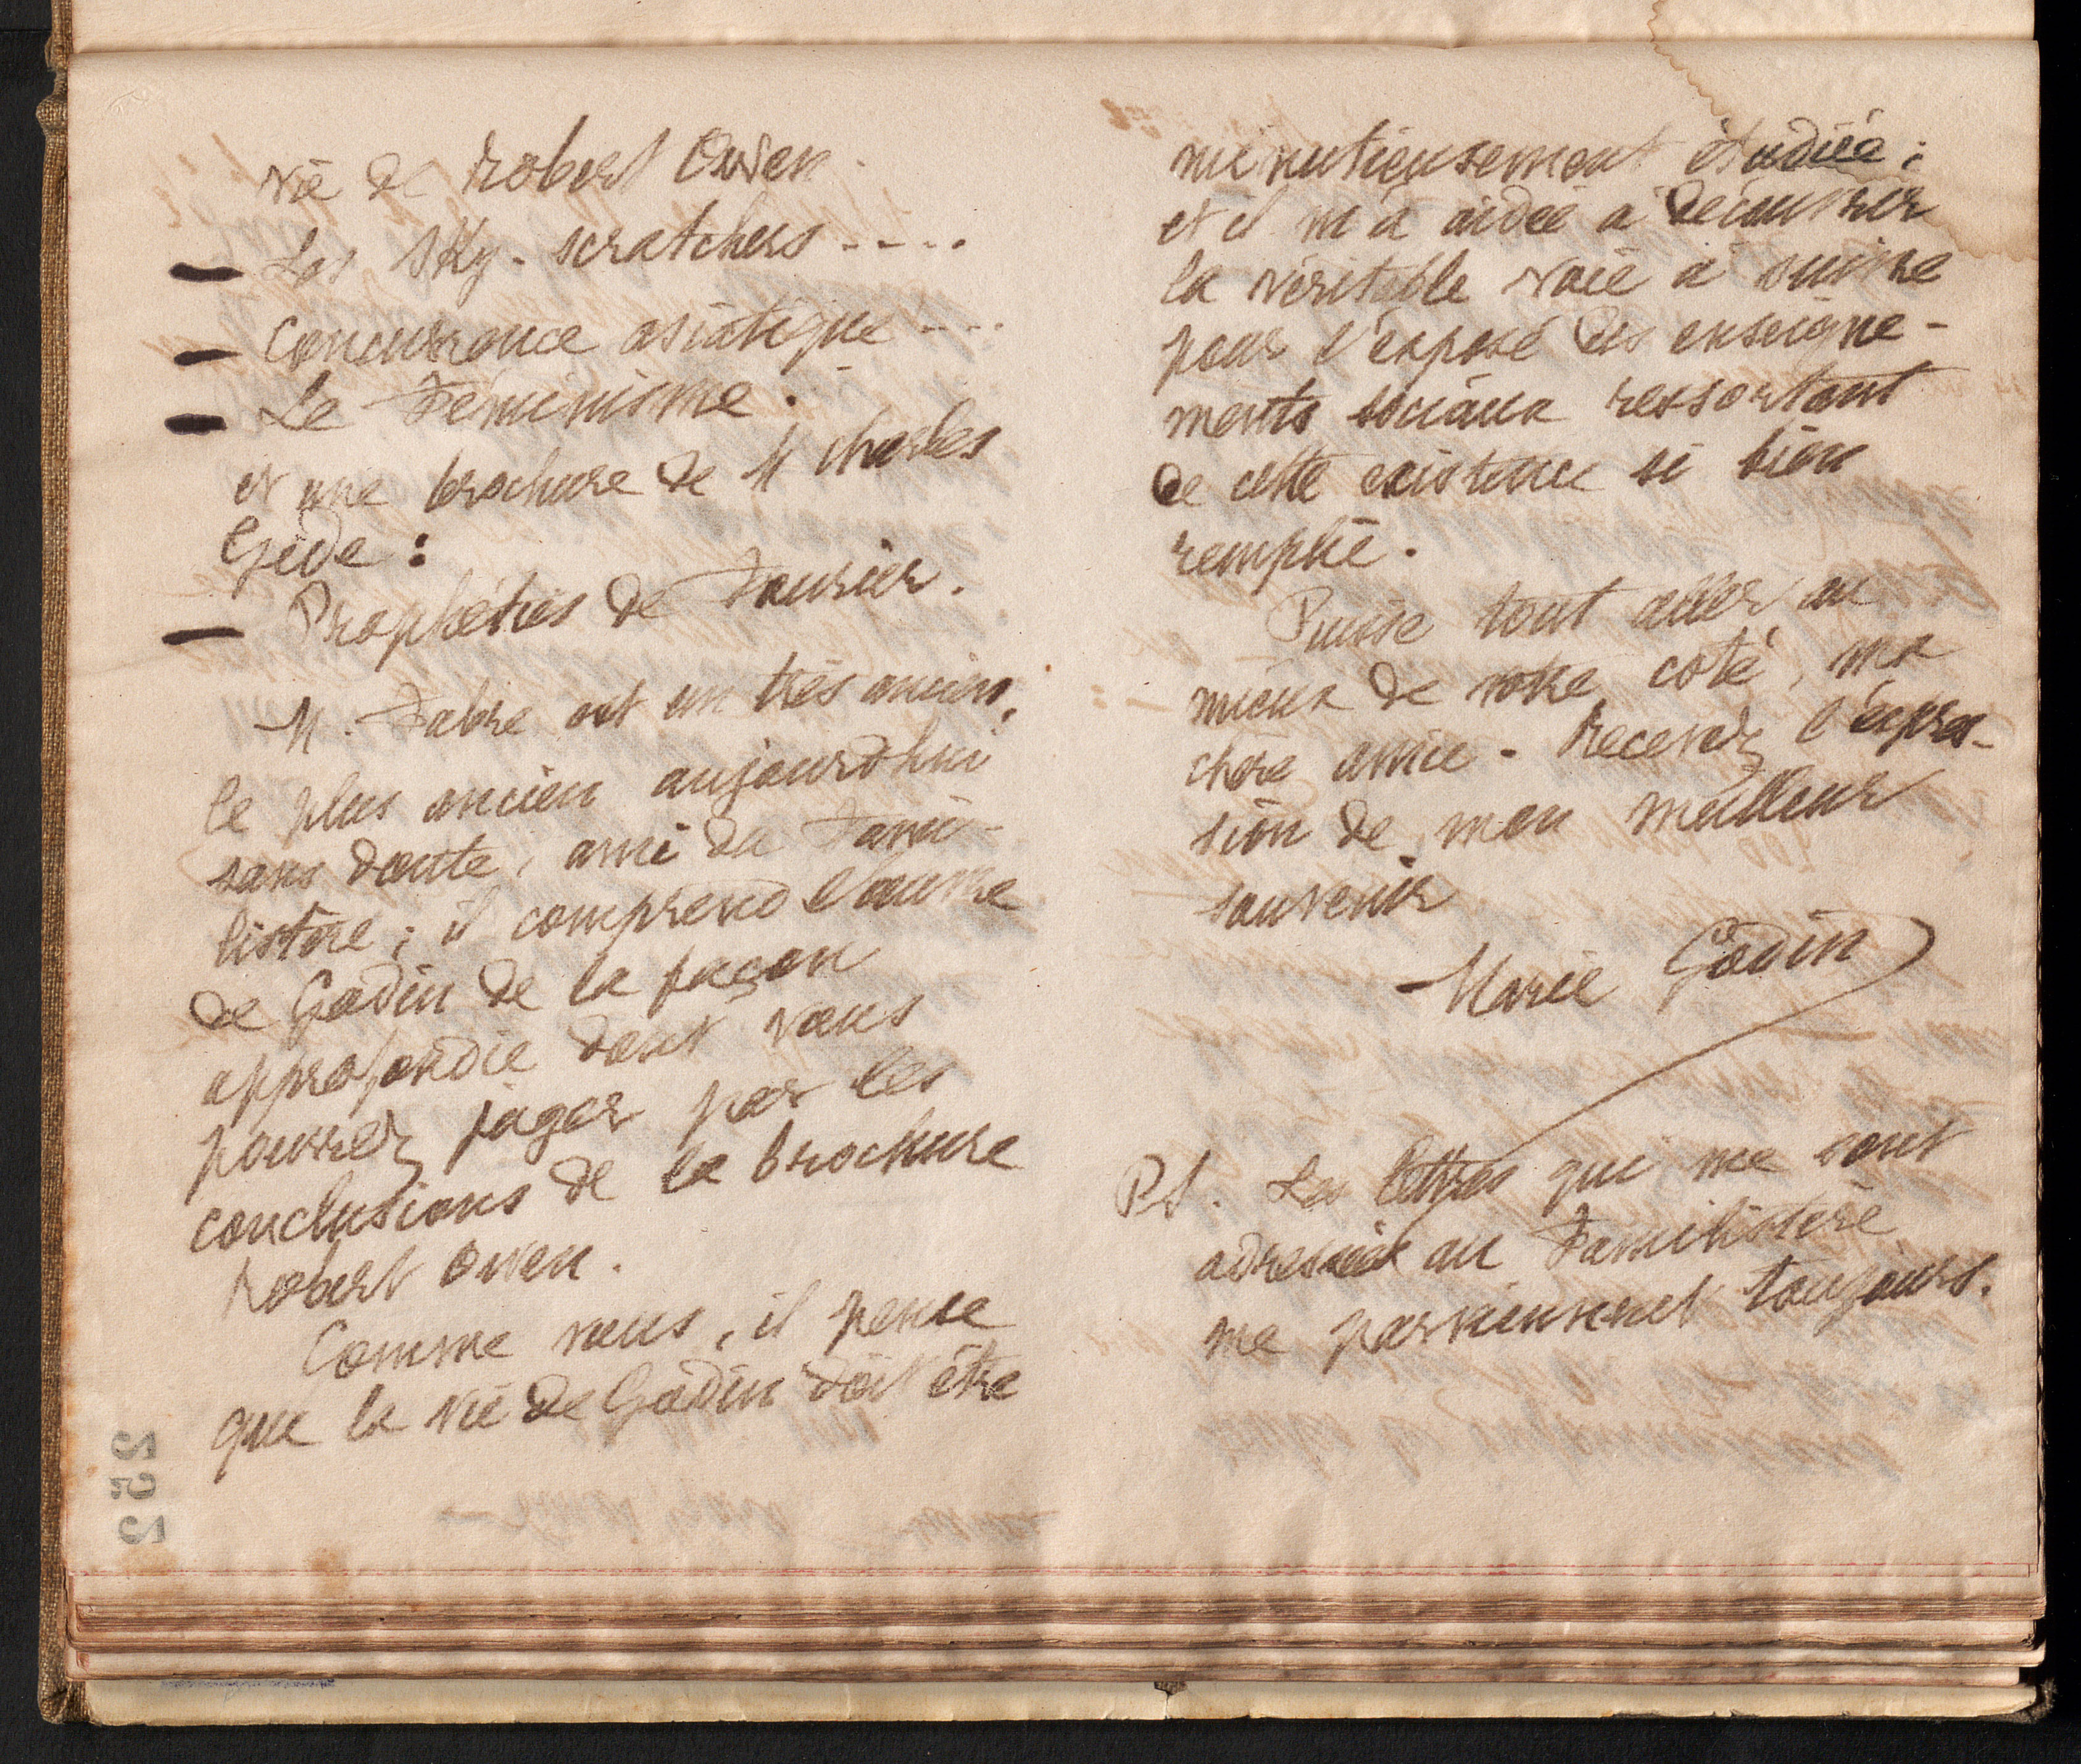 Vie de Robert Owen.
— Les Sky-scratchers -----
— Concurrence asiatique ----
— Le Féminisme.
et une brochure de M Charles
Gide :
— Prophéties de Fourier.
M. Fabre est un très ancien,
le plus ancien aujourd'hui
sans doute, ami du Fami-
listère ; il comprend l'œuvre
de Godin de la façon
approfondie dont vous
pourrez juger par les
conclusions de la brochure
Robert Owen.
Comme vous, il pense
que la vie de Godin doit être
minutieusement étudiée ;
et il m'a aidée à découvrir
la véritable voie à suivre
pour l'exposé des enseigne-
ments sociaux ressortant
de cette existence si bien
remplie.
Puisse tout aller au
mieux de votre côté, ma
chère amie. Recevez l'expres-
sion de mon meilleur
souvenir
Marie Godin
PS. Les lettres qui me sont
adressées au Familistère
me parviennent toujours.
252